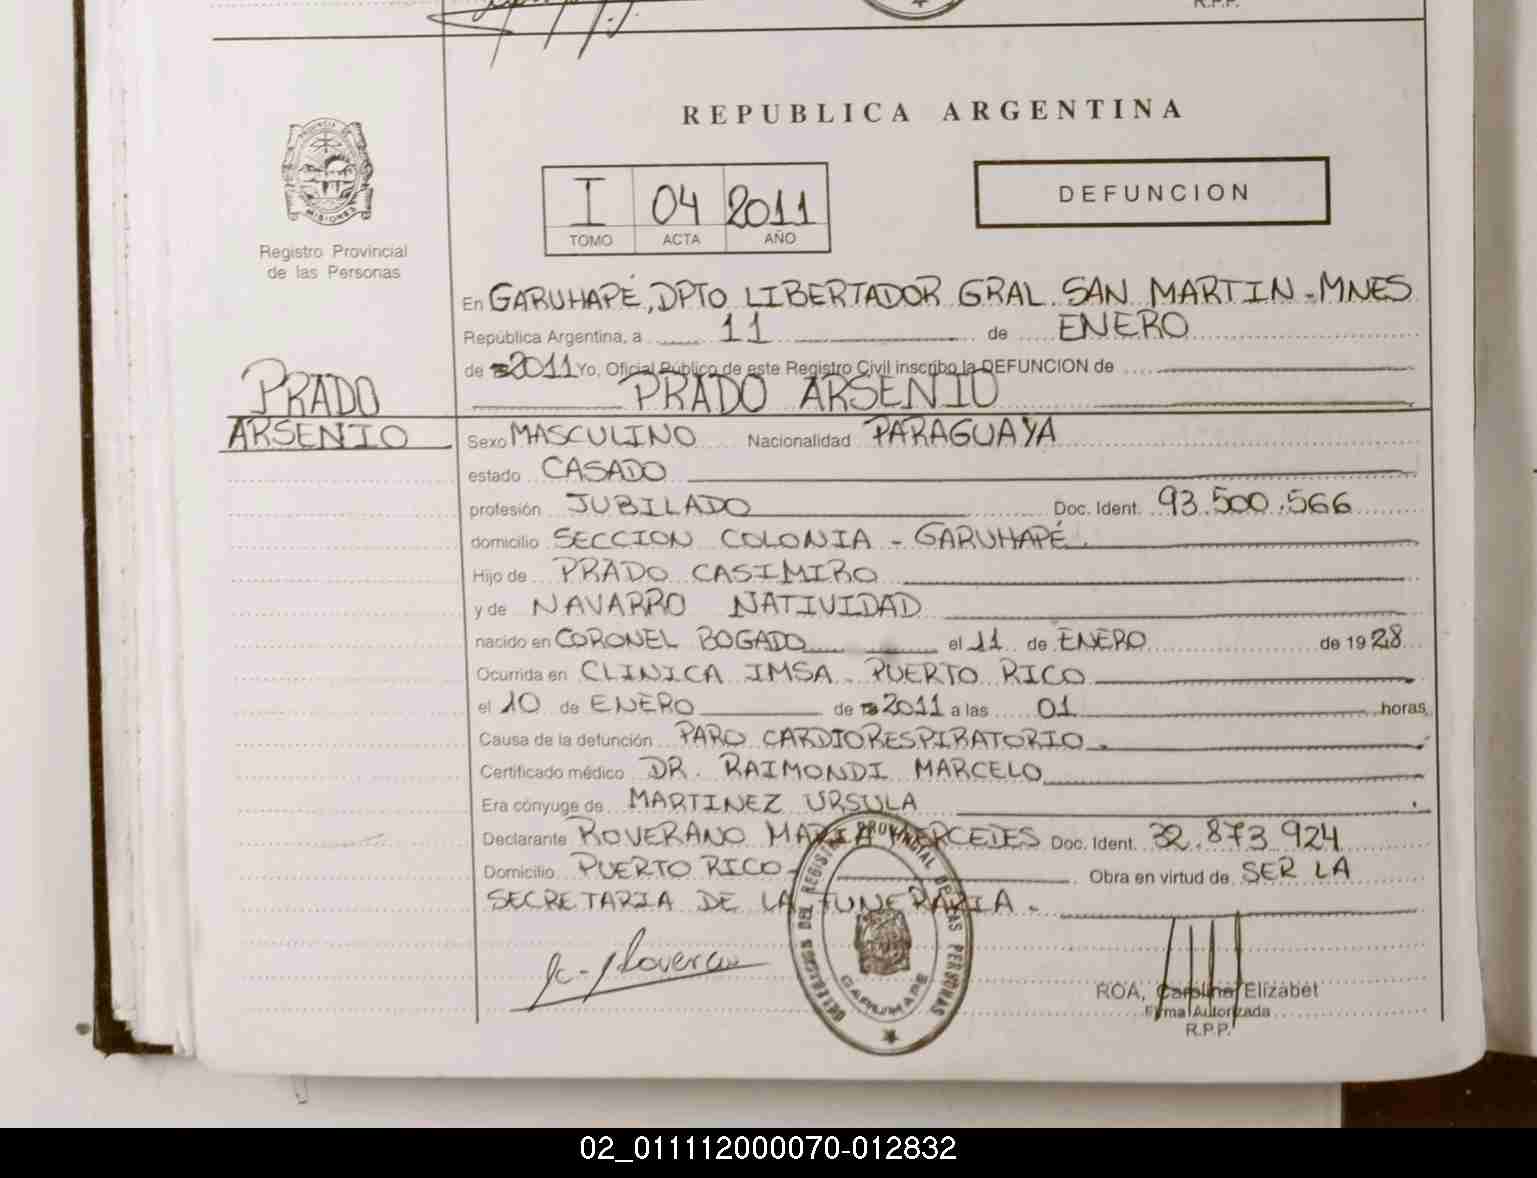 R.P.P.
REPUBLICA ARGENTINA
PROVINCIA DE
MISIONES
Registro Provincial
de las Personas
I 04 2011
TOMO ACTA AÑO
DEFUNCION
En GARUHAPÉ, DPTO LIBERTADOR GRAL. SAN MARTIN - MNES
República Argentina, a 11 de ENERO
de 2011 Yo, Oficial Público de este Registro Civil inscribo la DEFUNCION de
PRADO ARSENIO
PRADO
ARSENIO
Sexo MASCULINO Nacionalidad PARAGUAYA
estado CASADO
profesión JUBILADO Doc. Ident. 93.500.566
domicilio SECCION COLONIA - GARUHAPÉ.
Hijo de PRADO CASIMIRO
y de NAVARRO NATIVIDAD
nacido en CORONEL BOGADO el 11 de ENERO de 1928
Ocurrida en CLINICA IMSA - PUERTO RICO
el 10 de ENERO de 2011 a las 01 horas
Causa de la defunción PARO CARDIORESPIRATORIO.
Certificado médico DR. RAIMONDI MARCELO
Era cónyuge de MARTINEZ URSULA
Declarante ROVERANO MARIA MERCEDES Doc. Ident. 32.873.924
Domicilio PUERTO RICO - Obra en virtud de SER LA
SECRETARIA DE LA FUNERARIA -
DEL REGISTRO PROVINCIAL DE LAS PERSONAS
GARUHAPE
ROA, Carolina Elizabet
Firma Autorizada
R.P.P.
02_011112000070-012832